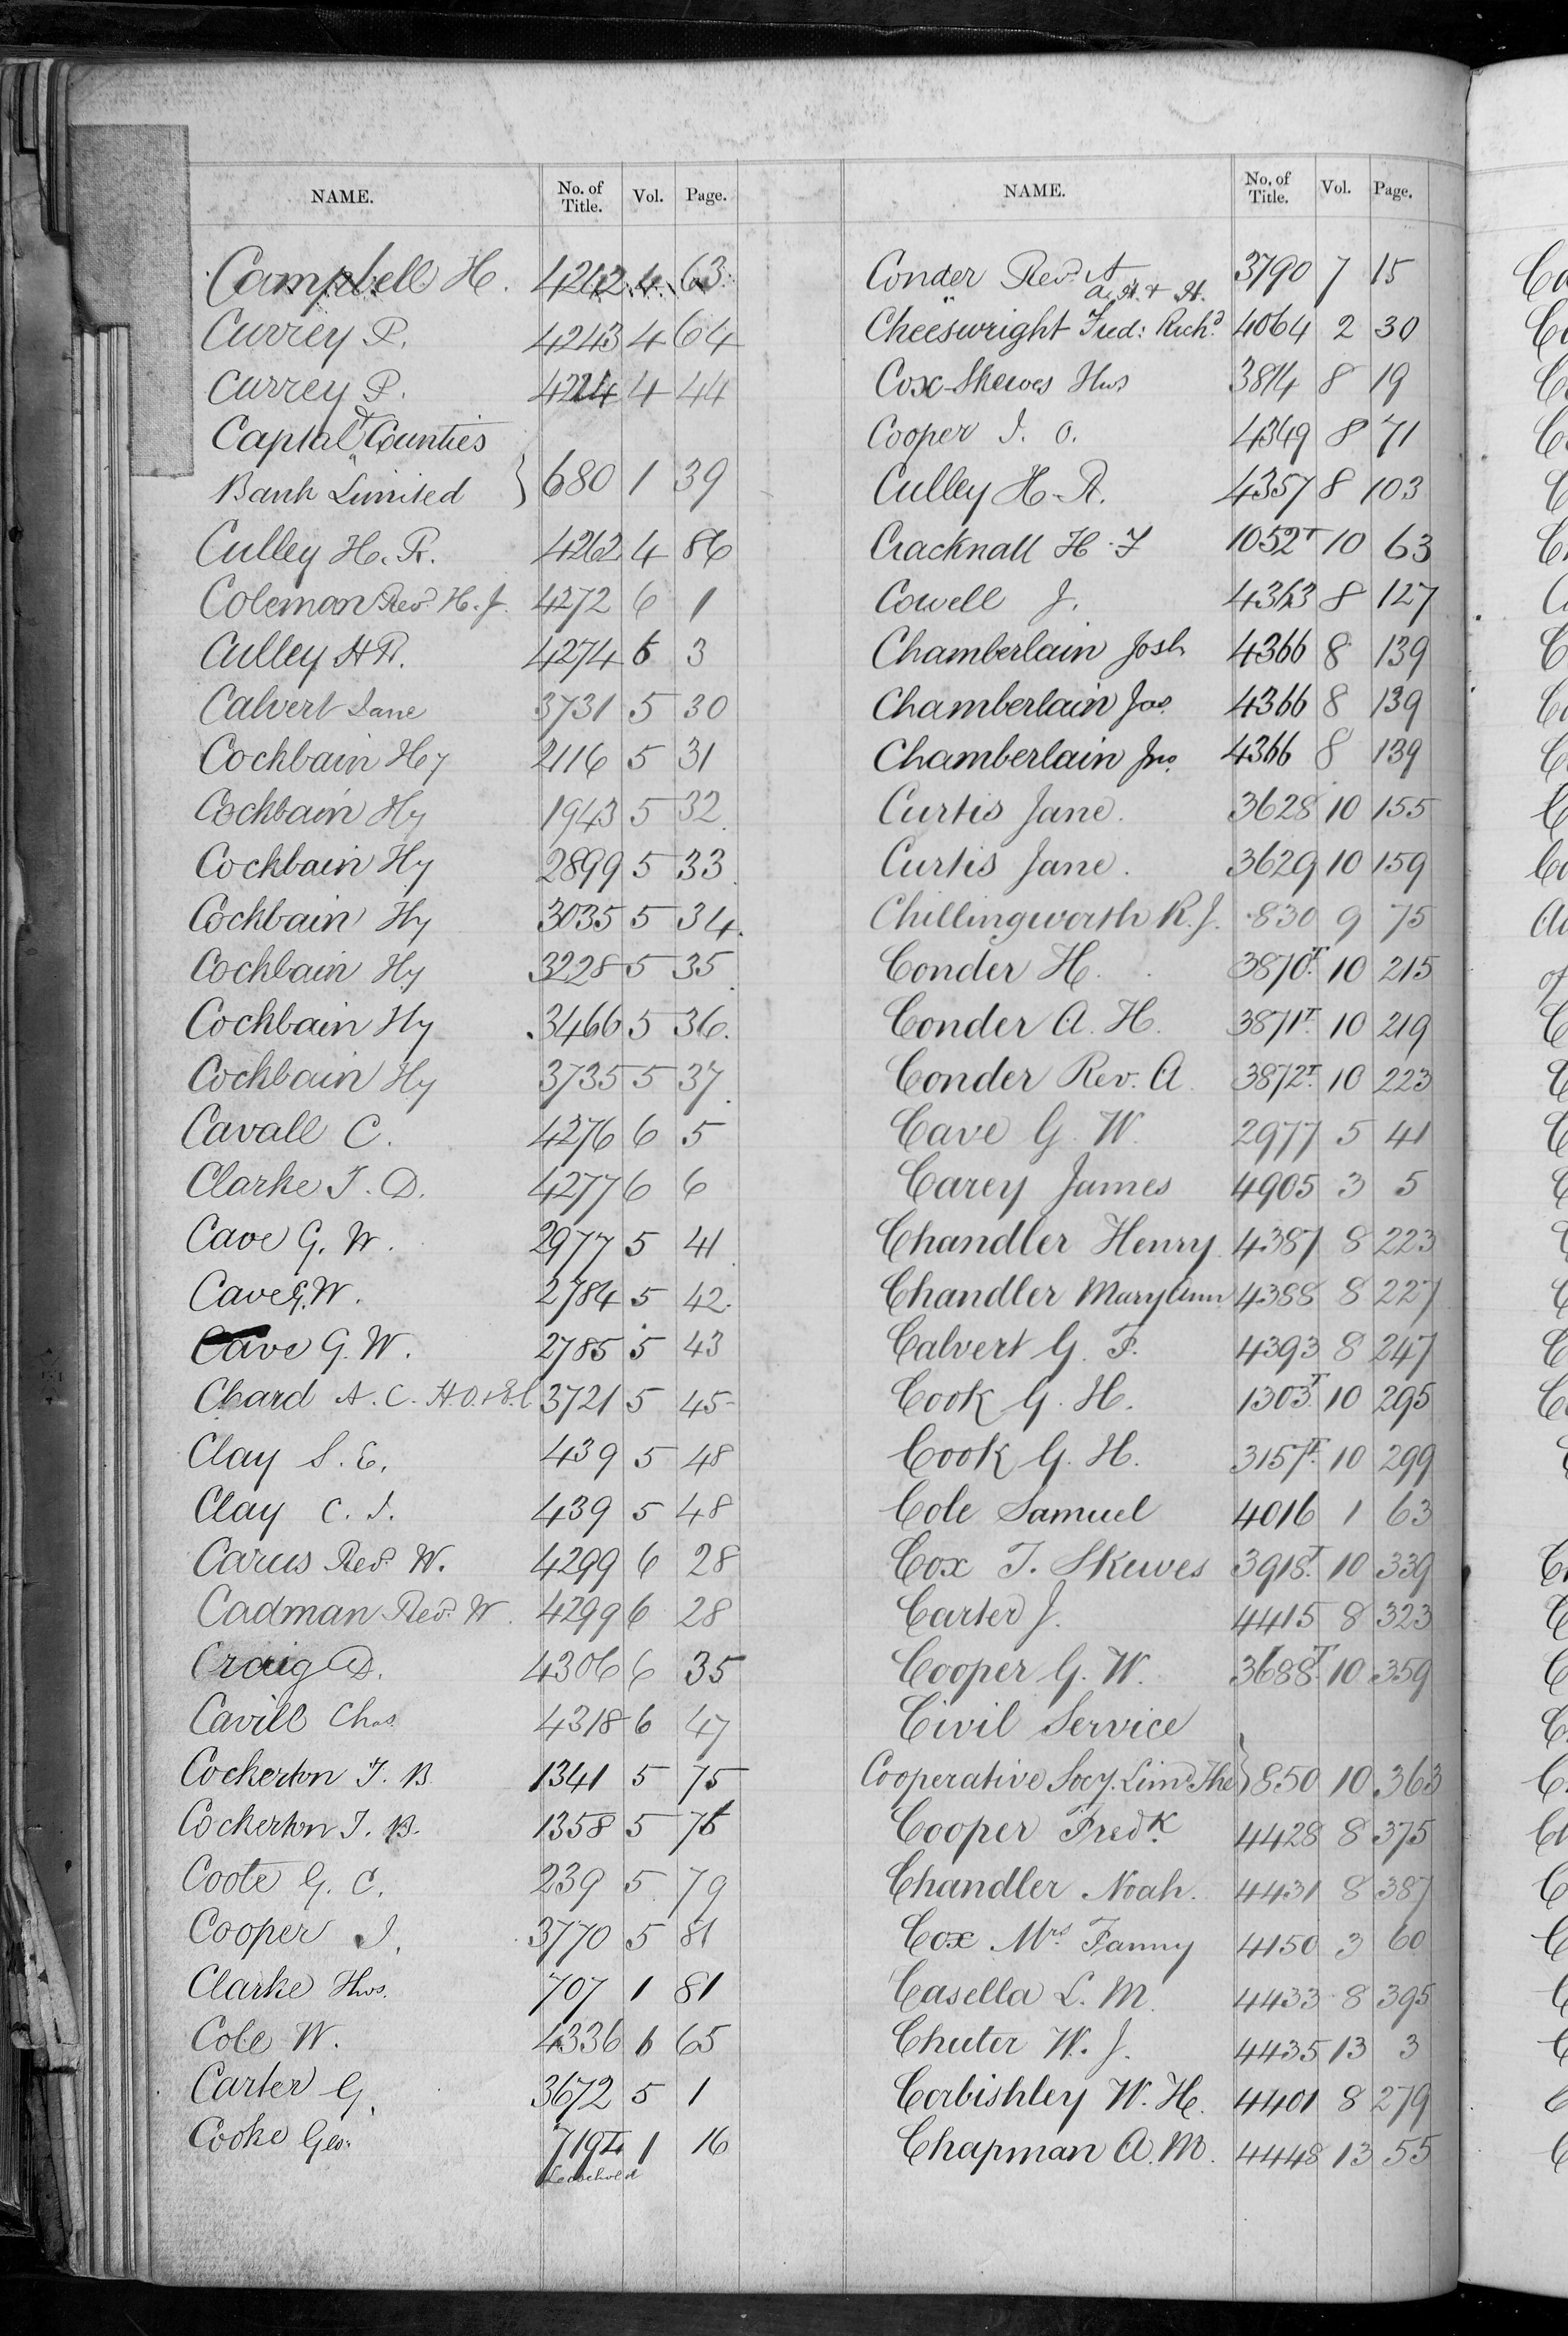 NAME. No. of Title. Vol. Page.
Campbell H. 4242 4 63
Currey P. 4243 4 64
Currey P. 4224 4 44
Capital & Counties
Bank Limited } 680 1 39
Culley H. R. 4262 4 86
Coleman Revd. H. J. 4272 6 1
Culley H R. 4274 6 3
Calvert Jane 3731 5 30
Cochbain Hy 2116 5 31
Cochbain Hy 1943 5 32
Cochbain Hy 2899 5 33
Cochbain Hy 3035 5 34.
Cochbain Hy 3228 5 35
Cochbain Hy 3466 5 36.
Cochbain Hy 3735 5 37
Cavall C. 4276 6 5
Clarke T. D. 4277 6 6
Cave G. W. 2977 5 41
Cave G. W. 2784 5 42.
Cave G. W. 2785 5 43
Chard A. C. H. O. & E. C 3721 5 45
Clay S. E. 439 5 48
Clay C. J. 439 5 48
Carus Revd. W. 4299 6 28
Cadman Revd. W. 4299 6 28
Craig D. 4306 6 35
Cavill Chas 4318 6 47
Cockerton T. B. 1341 5 75
Cockerton T. B. 1358 5 76
Coote G. C. 239 5 79
Cooper J. 3770 5 81
Clarke Thos. 707 1 81
Cole W. 4336 6 65
Carter G. 3672 5 1
Cooke Geo: 719 1 16
Leasehold
NAME. No. of Title. Vol. Page.
Conder Revd. A 3790 7 15
A. H. & H.
Cheeswright Fred: Richd. 4064 2 30
Cox-Skewes Thos 3814 8 19
Cooper J. O. 4349 8 71
Culley H. R. 4357 8 103
Cracknall H. F 1052T 10 63
Cowell J. 4363 8 127
Chamberlain Josh 4366 8 139
Chamberlain Jas. 4366 8 139
Chamberlain Jno. 4366 8 139
Curtis Jane. 3628 10 155
Curtis Jane. 3629 10 159
Chillingworth R. J. 830 9 75
Conder H. 3870T. 10 215
Conder A. H. 3871T. 10 219
Conder Rev. A. 3872T. 10 223
Cave G. W. 2977 5 41
Carey James 4905 3 5
Chandler Henry. 4387 8 223
Chandler Mary Ann 4388 8 227
Calvert G. F. 4393 8 247
Cook G. H. 1303T. 10 295
Cook G. H. 3157T. 10 299
Cole Samuel 4016 1 63
Cox T. Skewes 3918T. 10 339
Carter J. 4415 8 323
Cooper G. W. 3688T. 10 359
Civil Service
Cooperative Socy. Limd. The } 850 10 363
Cooper Fredk. 4428 8 375
Chandler Noah. 4431 8 387
Cox Mrs. Fanny 4150 3 60
Casella L. M. 4433 8 395
Chuter W. J. 4435 13 3
Corbishley W. H. 4401 8 279
Chapman A. M. 4448 13 55